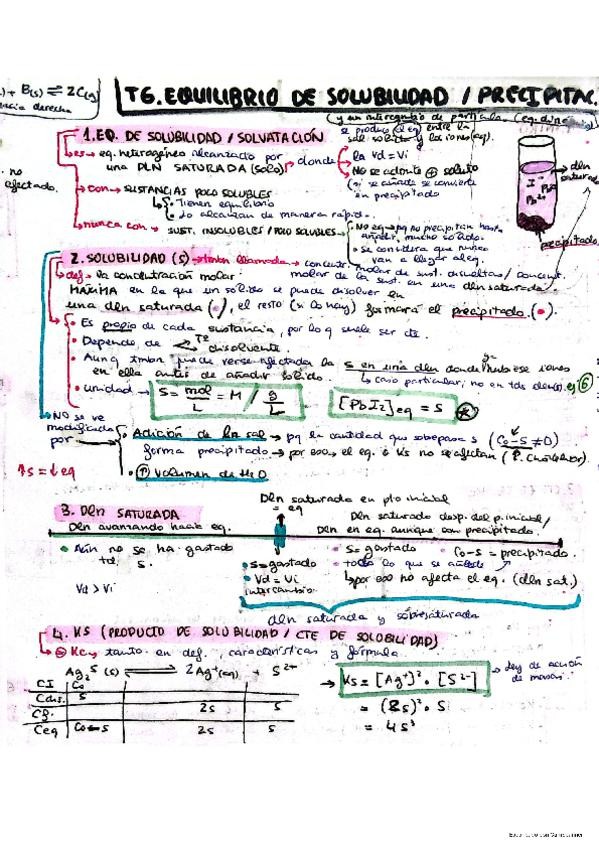 B(s) ⇌ 2C(g)
derecha
T6. EQUILIBRIO DE SOLUBILIDAD / PRECIPITAC.
(y un intercambio de partícula (eq. dina
se produce el eq) entre la
sal sólida y los iones (eq).
1. EQ. DE SOLUBILIDAD / SOLVATACIÓN
es → eq. heterogéneo alcanzado por
una DLN SATURADA (Solo)
donde
la Vd = Vi
NO se aciente ⊕ soluto
(si se añade se convierte
en precipitado
no
afectado.
con → SUSTANCIAS POCO SOLUBLES
Tienen equilibrio
lo alcanzan de manera rápida.
nunca con → SUST. INSOLUBLES / POCO SOLUBLES
NO eq pq no precipitan hasta
añadir mucho sólido.
Se considera que nunca
van a llegar al eq.
dln
saturada
I⁻
Pb²⁺
precipitado.
2. SOLUBILIDAD (S) → tmbn llamada → concentr. molar de sust. disueltas / concent.
def → la concentración molar
molar de la sust. en una dln saturada
MÁXIMA en la que un sólido se puede disolver en
una dln saturada (•), el resto (si lo hay) formará el precipitado. (•)
• Es propio de cada sustancia, por lo q suele ser cte.
• Depende de
Tª
disolvente.
• Aunq tmbn puede verse afectada la S en una dln donde hubiese iones
en ella antes de añadir sólido.
caso particular, no en tds dln(s). ej ⑥
• unidad → S = mol/L = M / g/L
[PbI₂]eq = S
NO se ve
modificada
por
• Adición de la sal → pq la cantidad que sobrepasa s (Co-S ≠ 0)
forma precipitado → por eso el eq. o Ks no se afectan (P. Chatelier).
• ↑ Volumen de H₂O
↑s = ↓eq
3. Dln SATURADA
Dln saturada en pto inicial
= eq
Dln avanzando hacia eq.
Dln saturada desp. del p. inicial /
Dln en eq. aunque con precipitado.
• Aún no se ha gastado
td. s.
Vd > Vi
• s = gastado
• Vd = Vi
intercambio
• s = gastado
Co-S = precipitado.
• todo lo que se añade
por eso no afecta el eq. (dln sat.)
dln saturada y sobresaturada
4. KS (PRODUCTO DE SOLUBILIDAD / CTE DE SOLUBILIDAD)
Kc → tanto en def., características y fórmula.
Ag₂S (s) ⇌ 2Ag⁺(aq) + S²⁻
CI Co
S
2s s
Ceq Co-s 2s s
→ Ks = [Ag⁺]² · [S²⁻]
→ ley de acción
de masas
= (2s)² · S
= 4s³